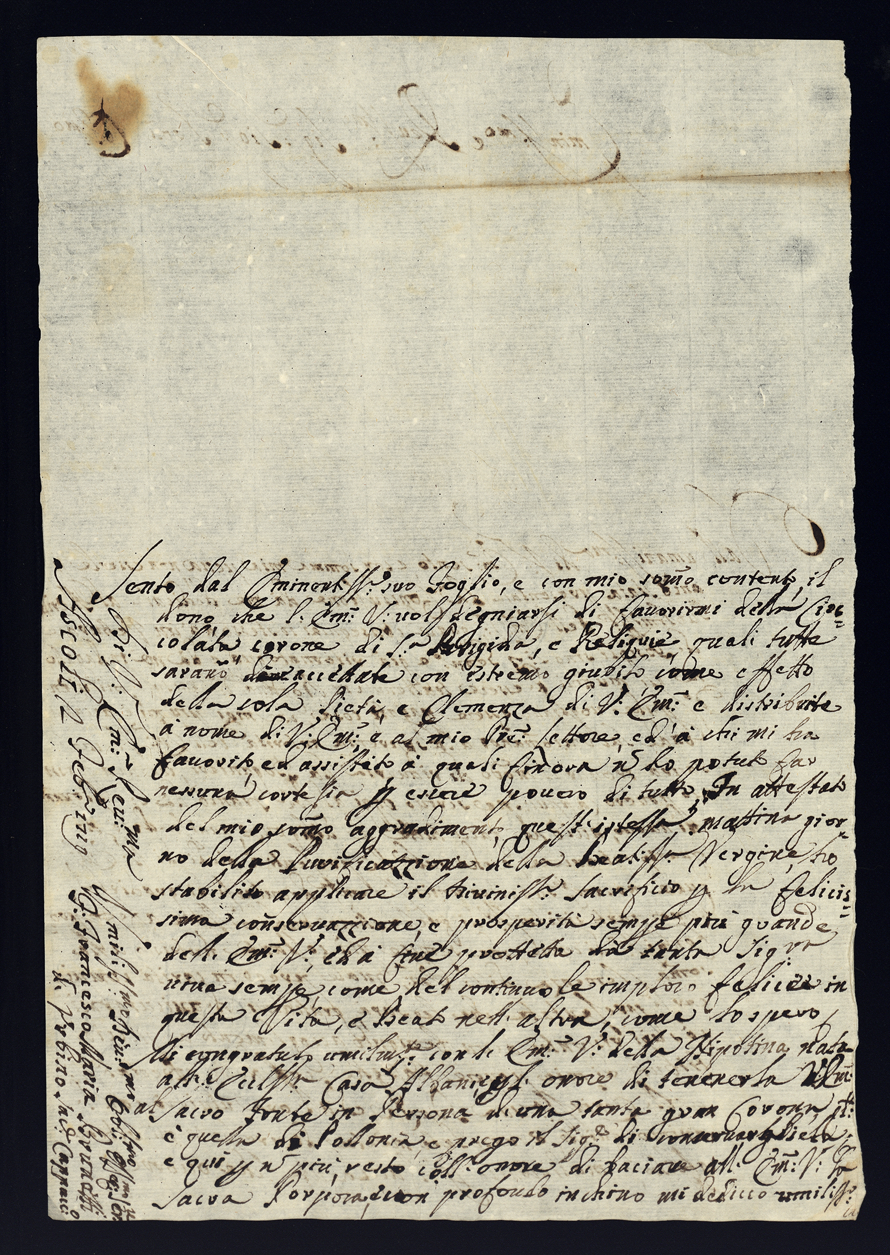 Sento dal Eminentiss:º suo Foglio, e con mio som̃o contento, il
dono, che l' Em: V: vuol degniarsi di favorirmi della Cioc=
colata, corone di S:ta Brigida, e Reliquie quali tutte
sarano accettate con estremo giubilo, come effetto
della sola Pietà, e Clemenza di V: Em: e distribuite
a nome di V: Em: e al mio Pre: lettore, ed' à chi mi ha
favorito, ed assistito à quali finora ñ ho potuto far
nessuna cortesia p esser povero di tutto, In attestato
del mio som̃o aggradimento, quest' istessa mattina gior=
no della Purificazzione della Beatiss:ª Vergine, hò
stabilito applicare il Divinissº: Sacrificio p la felicis=
sima conservazzione, e prosperità sempre più grande
dell' Em: V:, ed à fine protteta da tanta Sigra
viva sempre, come del continuo le imploro felice in
questa Vita, e Beato nell' altra, come lo spero,
Mi congratulo umilmte: con l' Em: V: della Nipotina nata
all' Eccellma: Casa Albani, e pl' onore di tenerla
al Sacro Fonte in Persona di una tanta gran Corona
è questa di Pollonia, e prego il Sigre: di conservargliela,
e qui p ñ più, resto coll' onore di baciare all' Em: V: la
Sacra Porpora, e con profondo inchino mi dedico umiliss:º
Di V: Em: Revma
Ascoli 2 Febro 1719
Umilissimo
F: Francesco Maria Brunetti
di Urbino Cappuccino